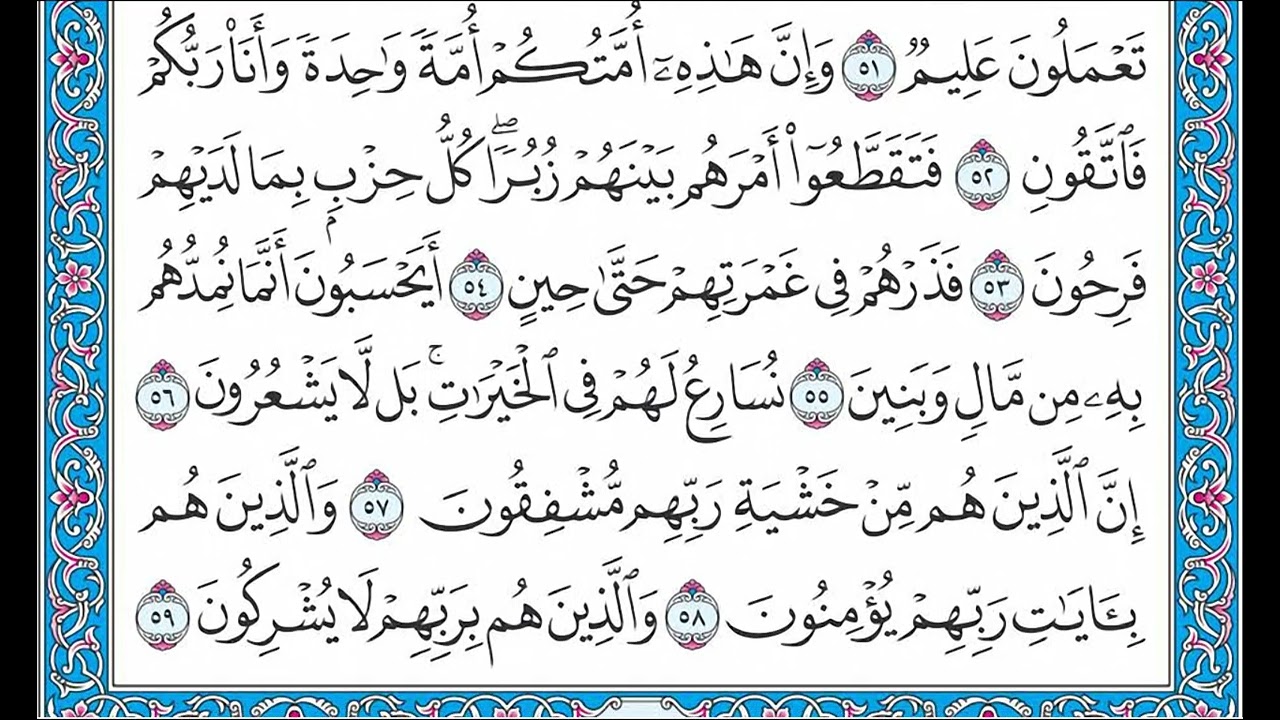 تَعْمَلُونَ عَلِيمٌ ٥١ وَإِنَّ هَٰذِهِۦٓ أُمَّتُكُمْ أُمَّةً وَٰحِدَةً وَأَنَا۠ رَبُّكُمْ
فَٱتَّقُونِ ٥٢ فَتَقَطَّعُوٓا۟ أَمْرَهُم بَيْنَهُمْ زُبُرًا ۖ كُلُّ حِزْبٍۭ بِمَا لَدَيْهِمْ
فَرِحُونَ ٥٣ فَذَرْهُمْ فِى غَمْرَتِهِمْ حَتَّىٰ حِينٍ ٥٤ أَيَحْسَبُونَ أَنَّمَا نُمِدُّهُم
بِهِۦ مِن مَّالٍ وَبَنِينَ ٥٥ نُسَارِعُ لَهُمْ فِى ٱلْخَيْرَٰتِ ۚ بَل لَّا يَشْعُرُونَ ٥٦
إِنَّ ٱلَّذِينَ هُم مِّنْ خَشْيَةِ رَبِّهِم مُّشْفِقُونَ ٥٧ وَٱلَّذِينَ هُم
بِـَٔايَـٰتِ رَبِّهِمْ يُؤْمِنُونَ ٥٨ وَٱلَّذِينَ هُم بِرَبِّهِمْ لَا يُشْرِكُونَ ٥٩